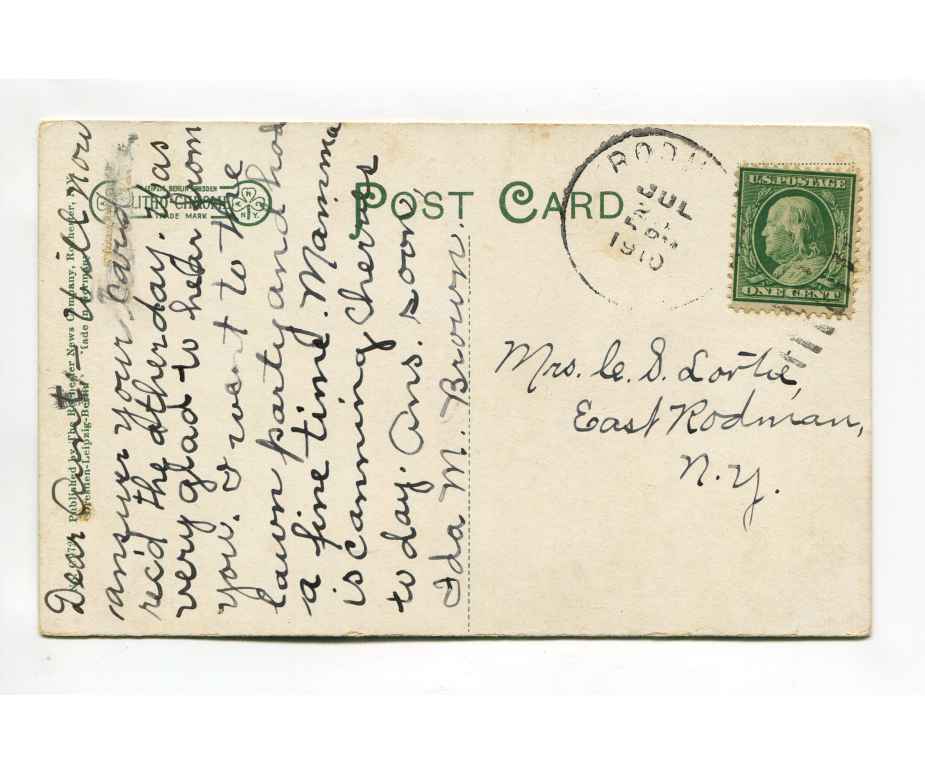 Dear Aunt - I will now
answer your card
rec'd the other day. Was
very glad to hear from
you. I went to the
lawn party and had
a fine time. Mamma
is canning cherries
to day. Ans. soon
Ida M. Brown.
Published by The Rochester News Company, Rochester, N.Y.
Dresden-Leipzig-Berlin
LEIPZIG BERLIN DRESDEN
LITHO-CHROME
TRADE MARK
POST CARD
RODM
JUL
1910
U.S. POSTAGE
ONE CENT
Mrs. C. D. Lortie,
East Rodman,
N.Y.